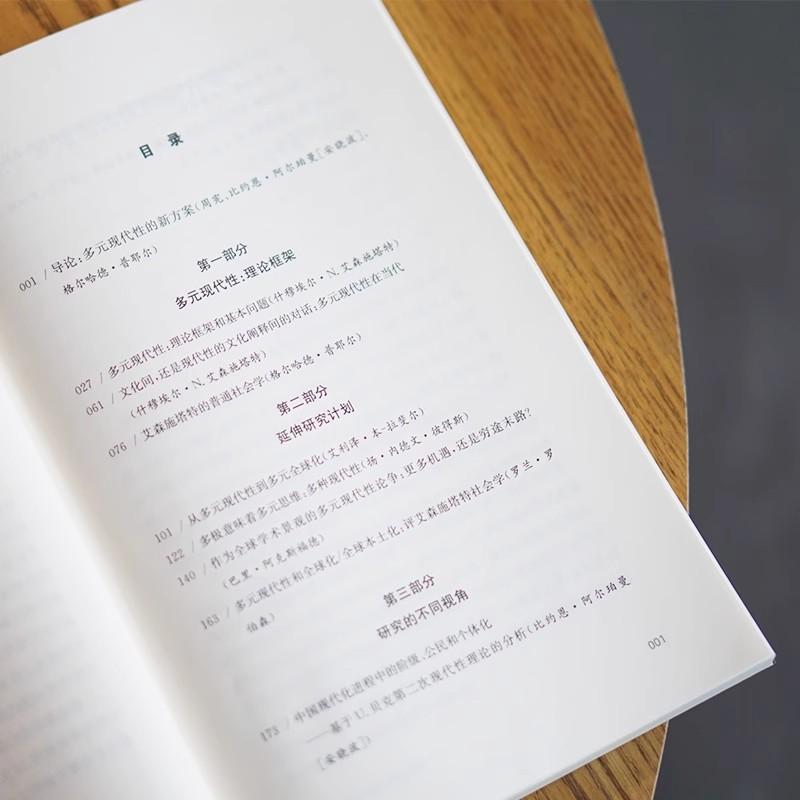 目 录
001 / 导论：多元现代性的新方案(周宪、比约恩·阿尔珀曼[宋晓波]、
格尔哈德·普耶尔)
第一部分
多元现代性：理论框架
027 / 多元现代性：理论框架和基本问题(什穆埃尔·N.艾森施塔特)
061 / 文化间,还是现代性的文化阐释间的对话：多元现代性在当代
(什穆埃尔·N.艾森施塔特)
076 / 艾森施塔特的普通社会学(格尔哈德·普耶尔)
第二部分
延伸研究计划
101 / 从多元现代性到多元全球化(艾利泽·本-拉斐尔)
122 / 多极意味着多元思维：多种现代性(扬·内德文·彼得斯)
140 / 作为全球学术景观的多元现代性论争：更多机遇,还是穷途末路？
(巴里·阿克斯福德)
163 / 多元现代性和全球化/全球本土化：评艾森施塔特社会学(罗兰·罗
伯森)
第三部分
研究的不同视角
173 / 中国现代化进程中的阶级、公民和个体化
——基于U.贝克第二次现代性理论的分析(比约恩·阿尔珀曼
[宋晓波])
001